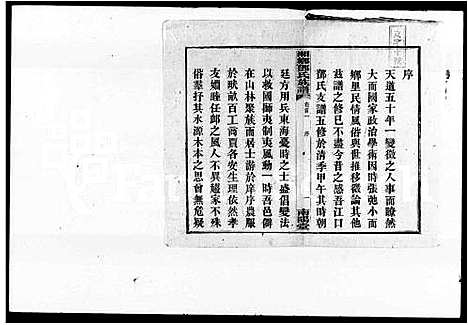 序
天道五十年一變徵之人事而瞭然
大而國家政治學術因時張弛小而
鄉里民情風俗與世推移微論其他
茲譜之修已不盡今昔之感吾江口
鄧氏支譜五修於清季甲午其時朝
湘鄉鄧氏族譜
卷首
序
一
南陽堂
廷方用兵東海憂時之士盛倡變法
以救國獅夷制夷風動一時吾邑僻
在山林聚族而居士游於庠序農服
於畎畝百工商賈各安生理依然孝
友婣睦任卹之風人不異趨家不殊
俗羣抒其水源木本之思曾無危疑